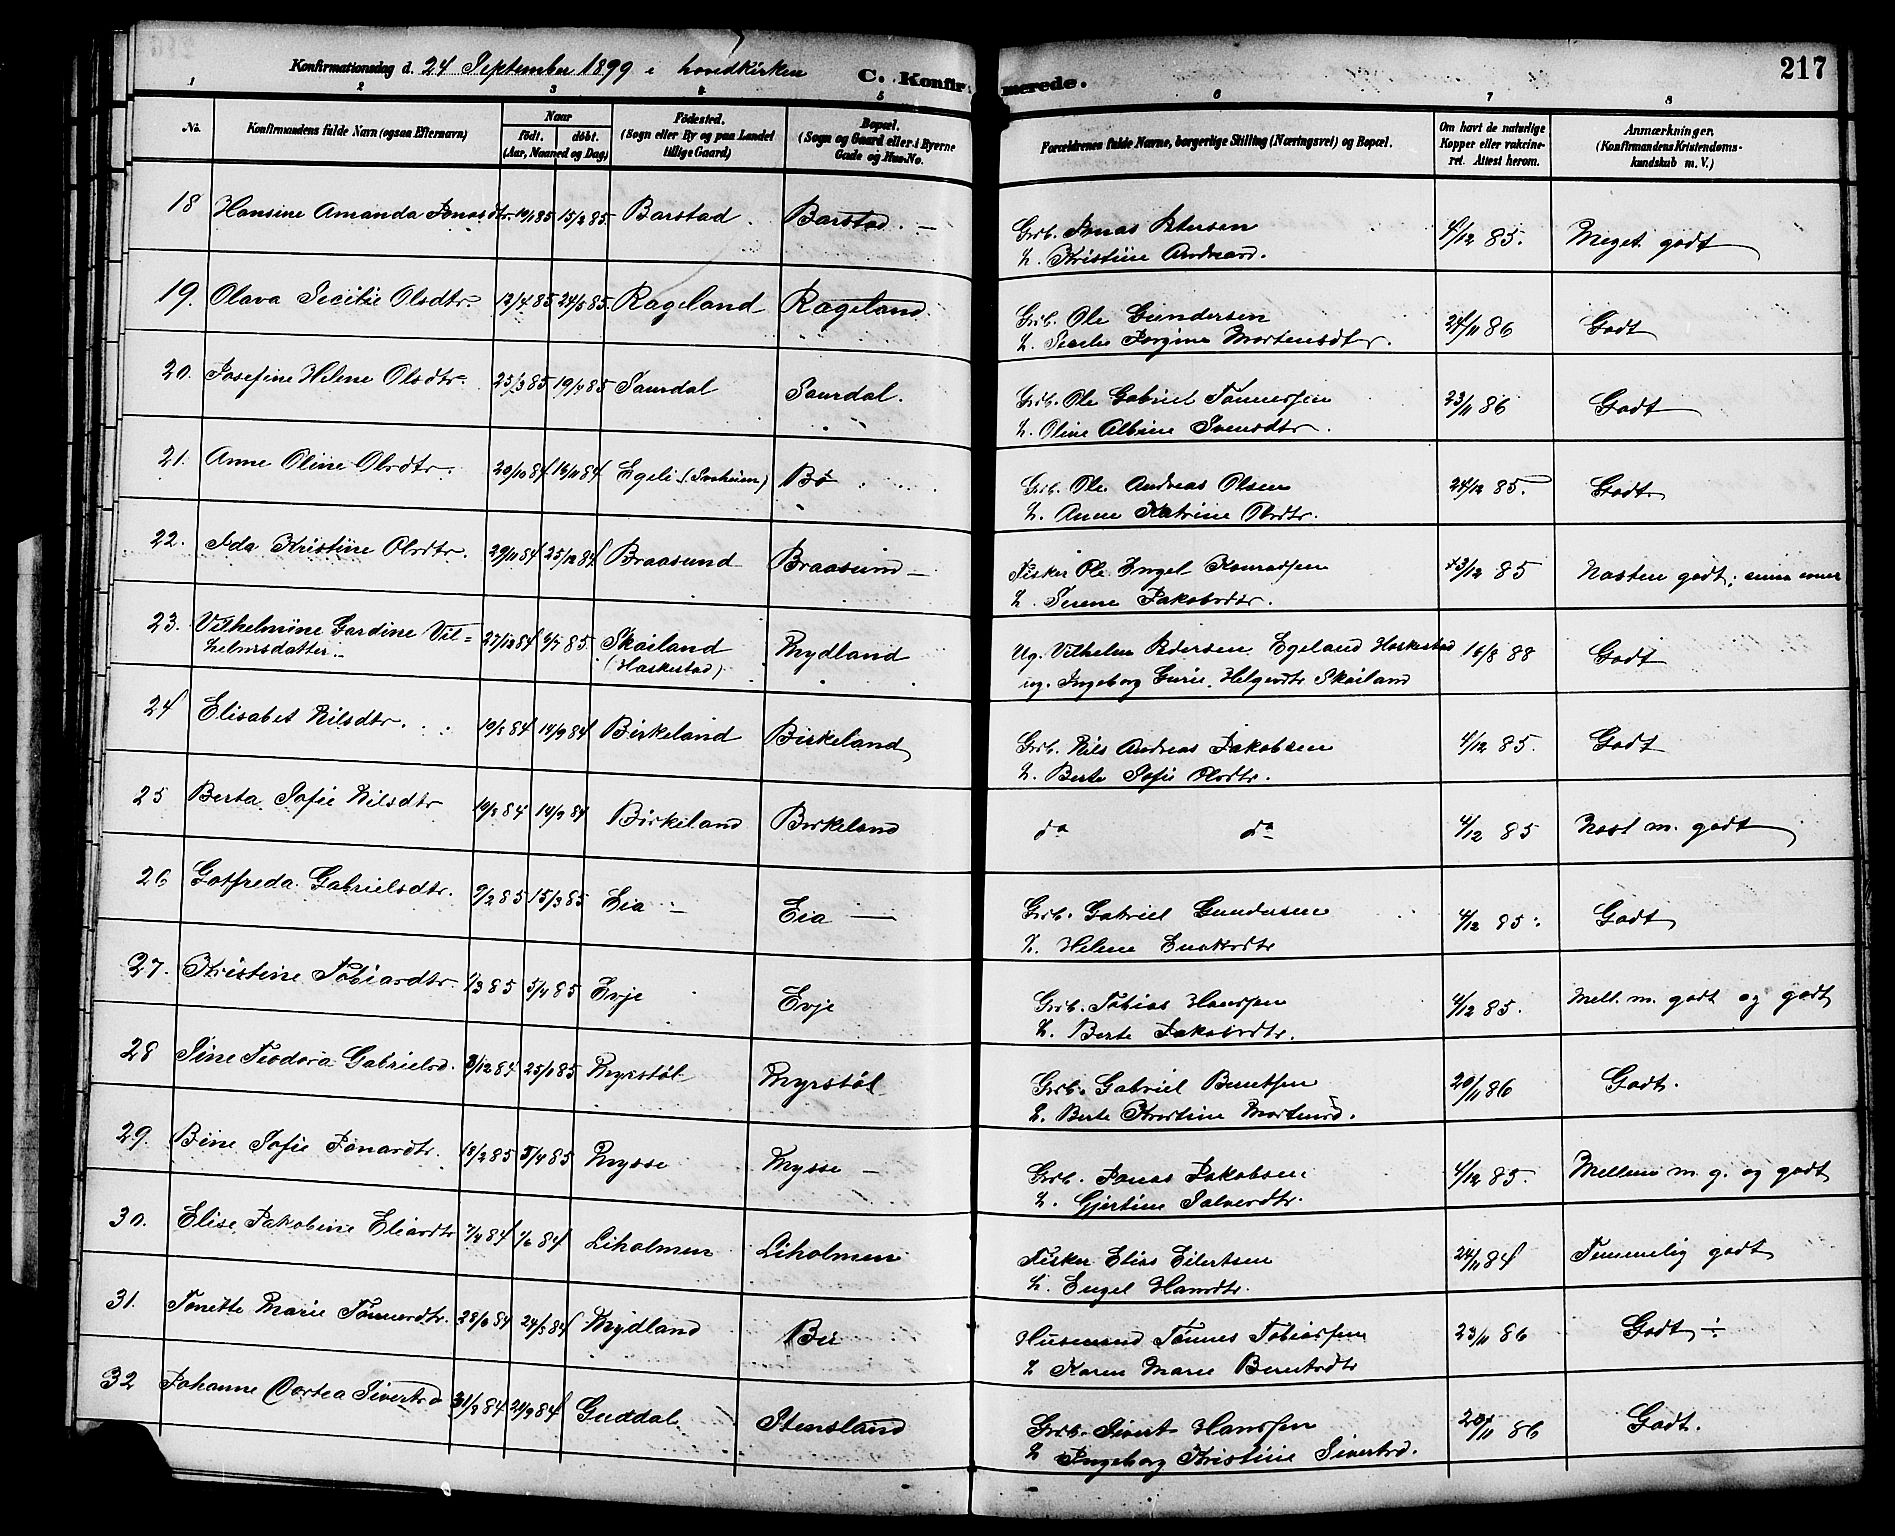 Konfirmationsdag d. 24 September 1899 i hovedkirken C. Konfirmerede. 217
1 2 3 4 5 6 7 8
No. Konfirmandens fulde Navn (ogsaa Efternavn) Naar födt. döbt. (Aar, Maaned og Dag) Födested. (Sogn eller By og paa Landet tillige Gaard) Bopæl. (Sogn og Gaard eller i Byerne Gade og Hus-No. Forældrenes fulde Navne, borgerlige Stilling (Næringsvei) og Bopæl. Om havt de naturlige Kopper eller vakcineret. Attest herom. Anmærkninger. (Konfirmandens Kristendomskundskab m. V.)
18 Hansine Amanda Jonasdtr 15/3 85. Barstad. Barstad. — Grb. Jonas Petersen 4/12 85. Meget godt
h. Kristine Andreasd.
19. Olava Secilie Olsdtr. 12/4 85 24/5 85. Rageland Rageland. Grb. Ole Gundersen 24/11 86 Godt
h. Secilie Jorgine Mortensdtr.
20. Josefine Helene Olsdtr. 25/3 85 19/4 85 Saurdal Saurdal. Grb. Ole Gabriel Tønnessen 23/11 86 Godt
h. Oline Albine Svensdtr.
21. Anne Oline Olsdtr. 20/10 84 16/11 84 Egeli (Soknen) Bø Grb. Ole Andreas Olsen 24/12 85. Godt.
h. Anne Katrine Olsdtr.
22. Ida Kristine Olsdtr. 29/11 84 25/12 84 Braasund Braasund — Fisker Ole Engel Konradsen 85 Næsten godt;
h. Serene Jakobsdtr.
23. Vilhelmine Gardine Vil= 27/12 84 85. Skailand Mydland Ug. Vilhelm Pedersen Egeland Heskestad 16/8 88 Godt
helmsdatter (Heskestad) ug. Ingeborg Gurie Helgesdtr Skailand
24 Elisabet Nilsdtr. 10/8 84 14/9 84 Birkeland Birkeland Grb. Nils Andreas Jakobsen 4/12 85. Godt
h. Berte Sofie Olsdtr.
25 Berta Sofie Nilsdtr 10/8 84 14/9 84 Birkeland Birkeland do do 4/12 85 Næst m. godt
26 Gotfreda Gabrielsdtr. 9/2 85 15/3 85 Eia — Eia — Grb. Gabriel Gundersen 4/12 85. Godt
h. Helene Enoksdtr
27. Kristine Tobiasdtr. 1/3 85 5/4 85 Evje Evje Grb. Tobias Hanssen 4/12 85. Mell. m. godt og godt
h. Berte Jakobsdtr.
28 Sine Teodora Gabrielsd. 3/12 84 25/1 85 Myrstøl Myrstøl Grb. Gabriel Berntsen 20/11 86 Godt.
h. Berte Kristine Mortensd.
29. Bine Sofie Jonasdtr. 18/2 85 5/4 85 Mysse Mysse — Grb. Jonas Jakobsen 4/12 85. Mellem m. g. og godt
h. Gjertine Salvesdtr.
30. Elise Jakobine Eliasdtr 7/4 84 1/6 84 Liholmen Liholmen Fisker Elias Eilertsen 24/11 84 Temmelig godt
h. Engel Hansdtr.
31. Tonette Marie Tønnesdtr. 24/8 84 Mydland Bø Husmand Tønnes Tobiassen 23/11 86 Godt ÷
h Karen Marie Berntsdtr
32 Johanne Dortea Sivertsd 31/8 84 21/9 84 Guddal Stensland Grb. Sivert Hanssen 20/11 86 Godt.
h Ingeborg Kristine Sivertsd.